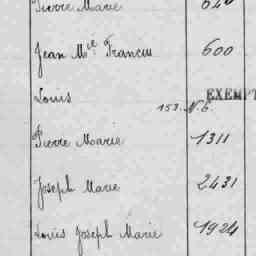 Pierre Marie 640
Jean Mie Francis 600
Louis EXEMPT
153. N. 6.
Pierre Marie 1311
Joseph Marie 2431
Louis Joseph Marie 1924